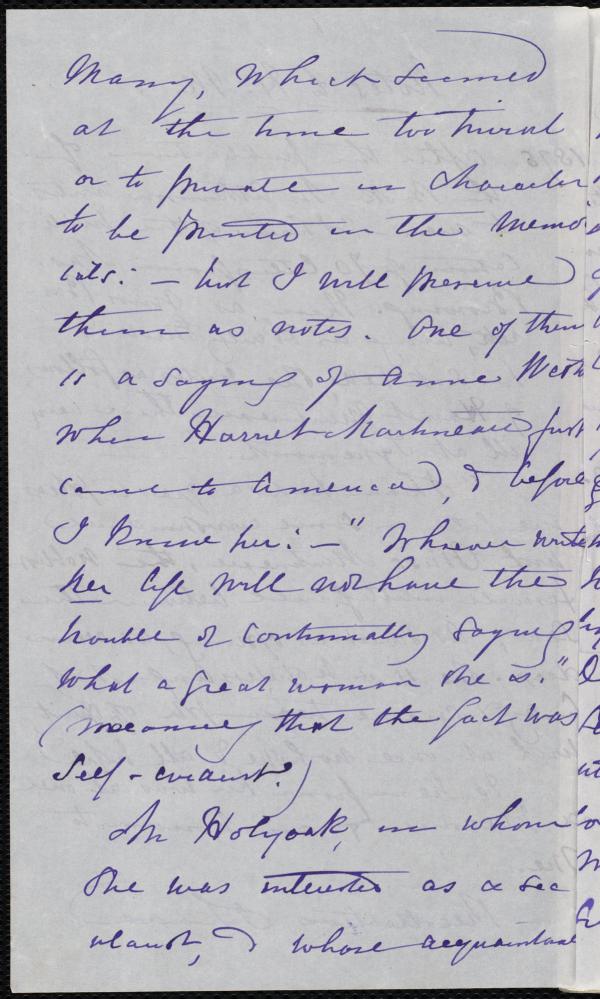 Many, which seemed
at the time too trivial
or to private in character
to be printed in the memo
ials: — but I will preserve
them as notes. One of them
is a saying of Anne Weston
when Harriet Martineau first
came to America, & before
I knew her: — "Whoever writes
her life will not have the
trouble of continually saying
what a great woman she is."
(meaning that the fact was
self-evident.)
Mr Holyoak, in whom
she was interested as a sec
ularist, & whose acquaintance